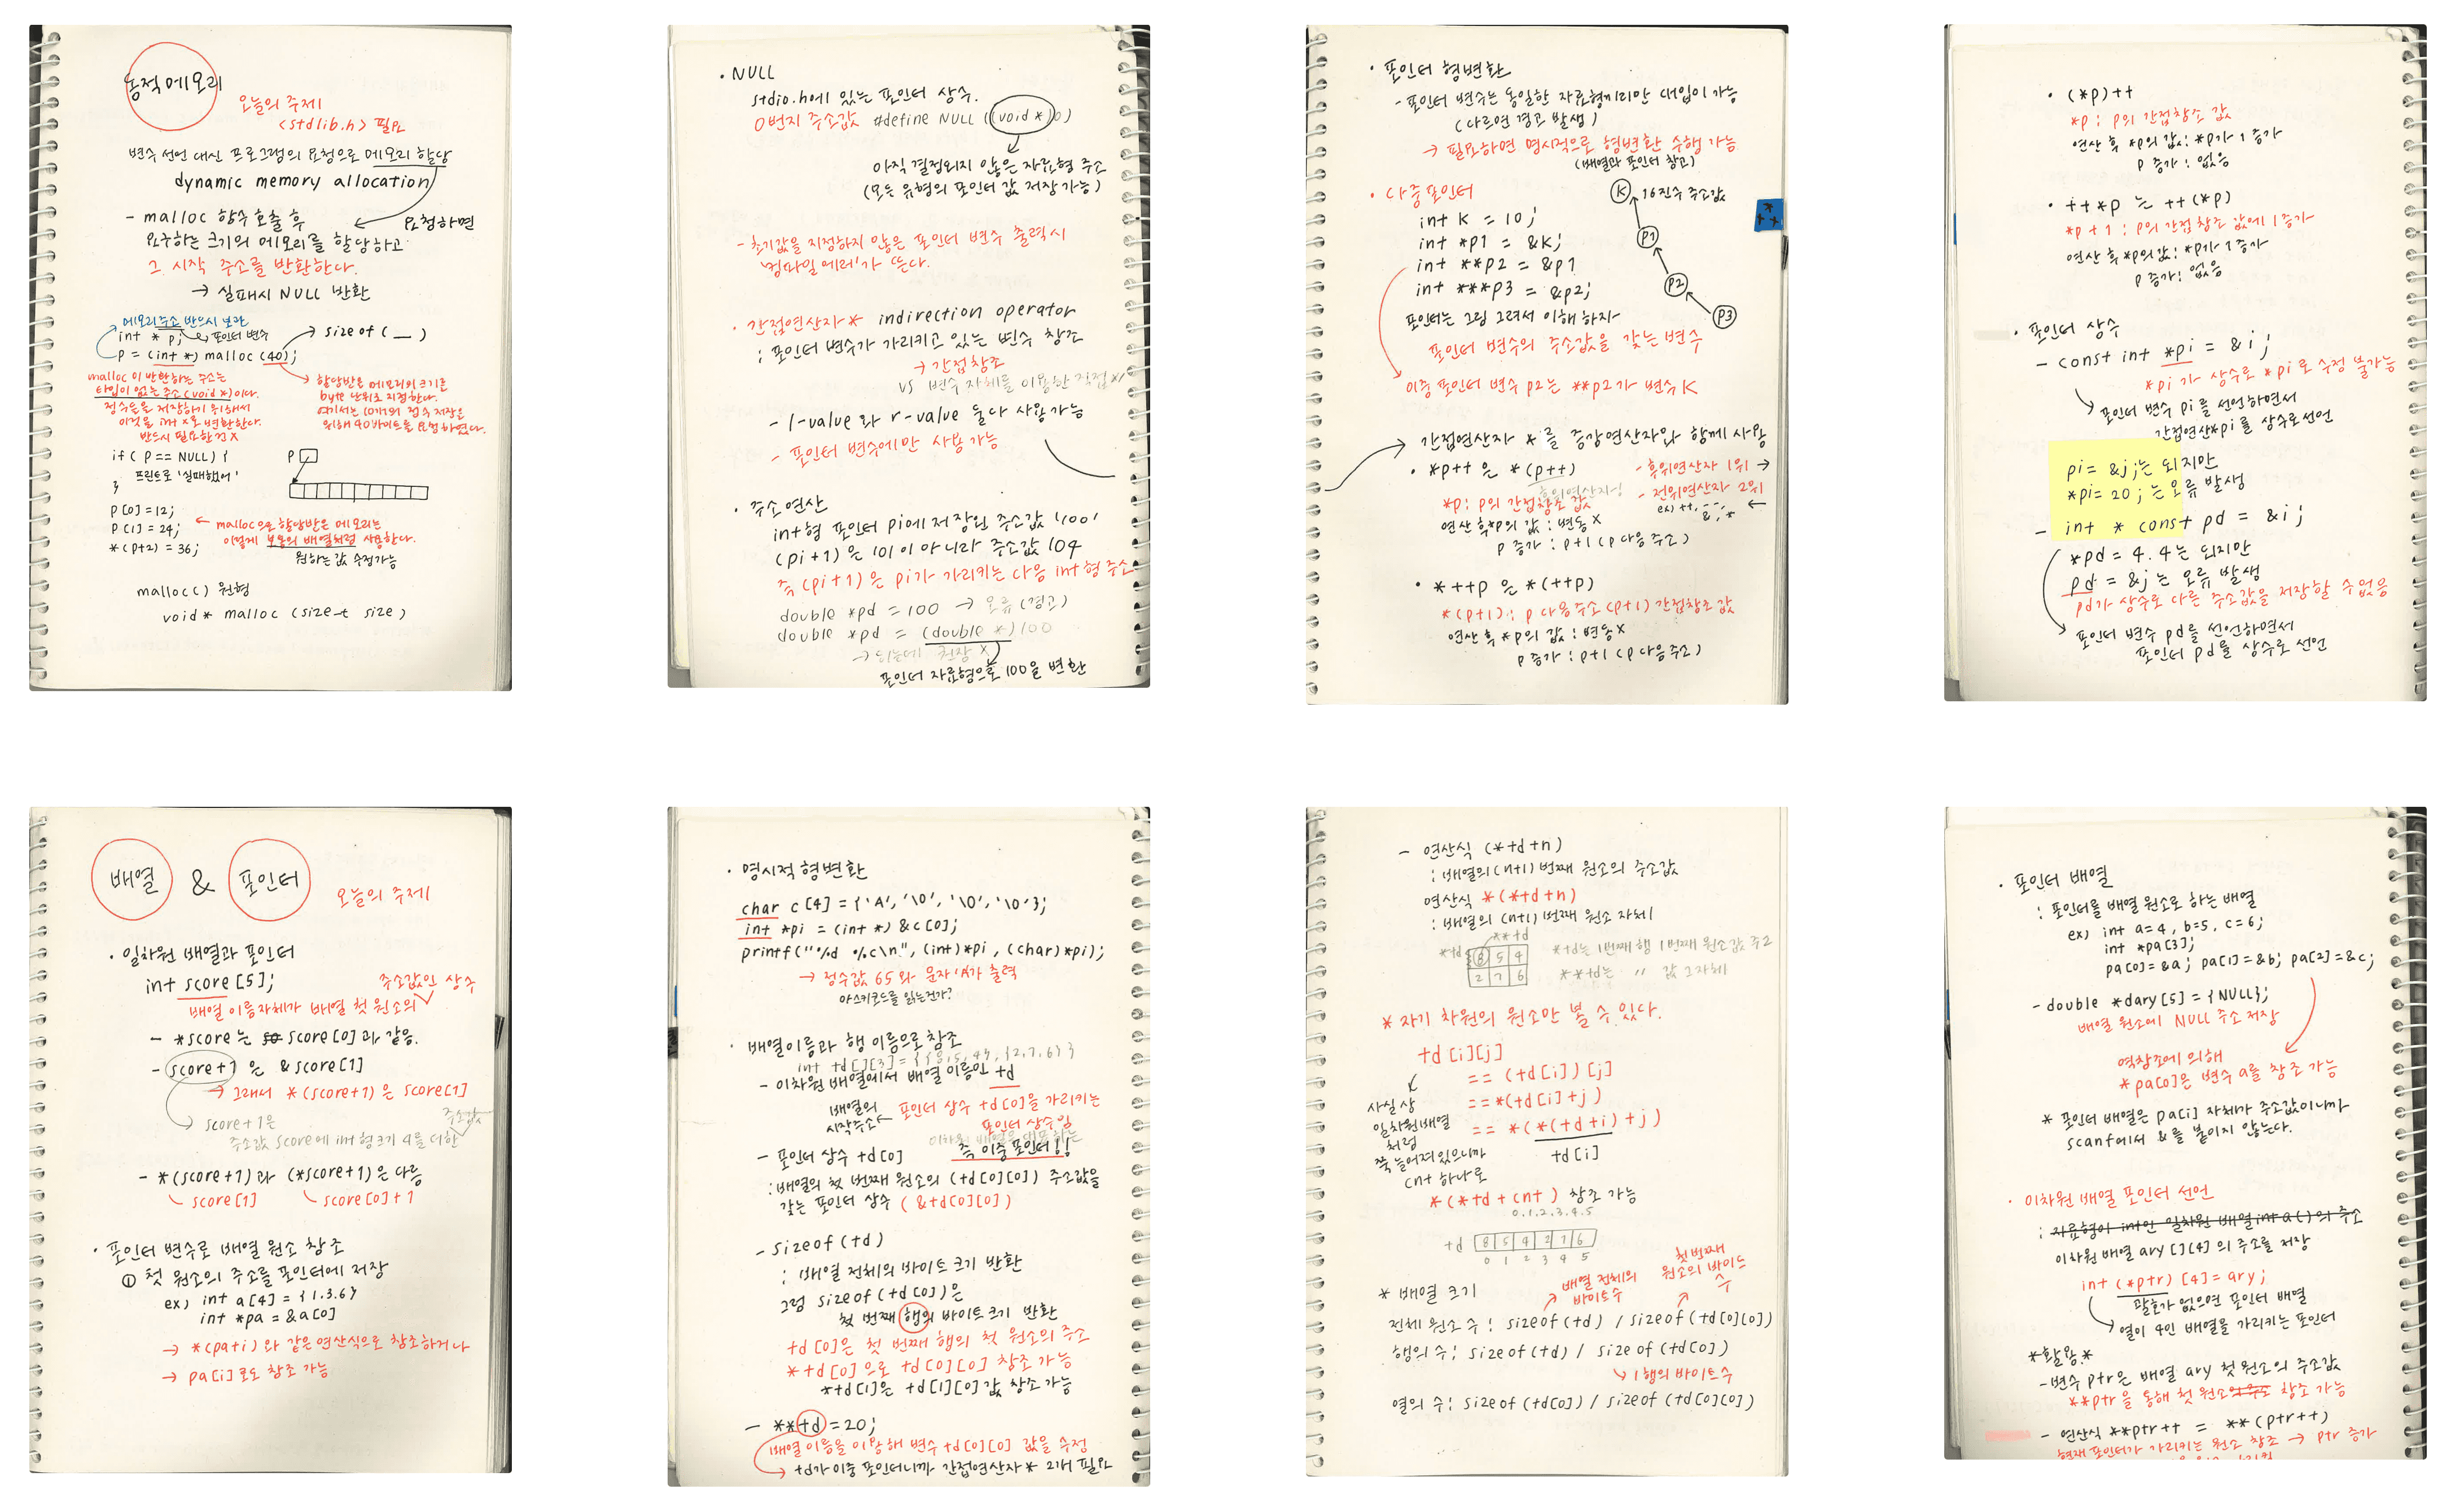 동적메모리
오늘의 주제1
<stdlib.h> 필요
변수 선언 대신 프로그램의 요청으로 메모리 할당
dynamic memory allocation
- malloc 함수 호출 후 요청하면
요구하는 크기의 메모리를 할당하고
그 시작 주소를 반환한다.
→ 실패시 NULL 반환
메모리 주소 반드시 보관
int * p; 포인터 변수
p = (int *) malloc (40);
→ size of ( _ )
malloc이 반환하는 주소는
타입이 없는 주소(void *)이다.
정수들을 저장하기 위해서
이것을 int *로 변환한다.
반드시 필요한건 X
할당받은 메모리의 크기는
byte 단위로 지정한다.
여기서는 10개의 정수 저장을
위해 40바이트를 요청하였다.
if ( p == NULL ) {
프린트로 '실패했어'
}
P
p[0] = 12;
p[1] = 24;
*(p+2) = 36;
← malloc으로 할당받은 메모리는
이렇게 보통의 배열처럼 사용한다.
원하는 값 수정가능
malloc() 원형
void* malloc (size_t size)
· NULL
stdio.h에 있는 포인터 상수.
0번지 주소값 #define NULL ((void *)0)
아직 결정되지 않은 자료형 주소
(모든 유형의 포인터 값 저장 가능)
- 초기값을 지정하지 않은 포인터 변수 출력시
'컴파일 에러'가 뜬다.
· 간접연산자 * indirection operator
: 포인터 변수가 가리키고 있는 변수 참조
→ 간접참조
vs 변수 자체를 이용한 직접 "
- l-value 와 r-value 둘다 사용가능
- 포인터 변수에만 사용 가능
· 주소 연산
int형 포인터 pi에 저장된 주소값 '100'
(pi+1)은 101이 아니라 주소값 104
즉 (pi+1)은 pi가 가리키는 다음 int형 주소
double *pd = 100 → 오류 (경고)
double *pd = (double *)100
포인터 자료형으로 100을 변환
· 포인터 형변환
- 포인터 변수는 동일한 자료형끼리만 대입이 가능
(다르면 경고 발생)
→ 필요하면 명시적으로 형변환 수행 가능
(배열과 포인터 참고)
· 다중포인터
int K = 10;
int *p1 = &K;
int **p2 = &p1
int ***p3 = &p2;
K 16진수 주소값
P1
P2
P3
포인터는 그림 그려서 이해 하자-
포인터 변수의 주소값을 갖는 변수
이중 포인터 변수 p2는 **p2가 변수 K
간접연산자 * 를 증감연산자와 함께 사용
· *p++ 은 *(p++)
- 후위연산자 1위 →
- 전위연산자 2위
ex) ++, --, &, * ←
*p: p의 간접참조 값
연산 후 *p의 값 : 변동 X
p 증가 : p+1 (p 다음 주소)
· *++p 은 *(++p)
*(p+1) : p 다음 주소 (p+1) 간접참조 값
연산 후 *p의 값 : 변동 X
p 증가 : p+1 (p 다음 주소)
· (*p)++
*p : p의 간접참조 값
연산 후 *p의 값 : *p가 1 증가
p 증가 : 없음
· ++*p 는 ++(*p)
*p + 1 : p의 간접참조 값에 1 증가
연산 후 *p의 값 : *p가 1 증가
p 증가 : 없음
· 포인터 상수
- const int *pi = &i;
*pi 가 상수로 *pi 로 수정 불가능
포인터 변수 pi를 선언하면서
간접연산*pi를 상수로 선언
pi = &j;는 되지만
*pi = 20 ; 는 오류 발생
- int * const pd = &i;
*pd = 4.4는 되지만
pd = &j는 오류 발생
pd가 상수로 다른 주소값을 저장할 수 없음
포인터 변수 pd를 선언하면서
포인터 pd를 상수로 선언
배열 & 포인터
오늘의 주제1
· 일차원 배열과 포인터
int score [5];
주소값인 상수
배열 이름자체가 배열 첫 원소의
- *score는 score[0]과 같음.
- score+1 은 &score[1]
→ 그래서 *(score+1)은 score[1]
score+1은
주소값
주소값 score에 int 형크기 4를 더한
- *(score+1)과 (*score+1)은 다름
score[1] score[0]+1
· 포인터 변수로 배열 원소 참조
① 첫 원소의 주소를 포인터에 저장
ex) int a[4] = {1.3.6}
int *pa = &a[0]
→ *(pa+i)와 같은 연산식으로 참조하거나
→ pa[i]로도 참조 가능
· 명시적 형변환
char c[4] = {'A', '\0', '\0', '\0'};
int *pi = (int *) &c[0];
printf("%d %c\n", (int)*pi, (char)*pi);
→ 정수값 65와 문자 'A'가 출력
아스키코드를 읽는건가?
· 배열이름과 행 이름으로 참조
int td[][3] = {{8,5,4}, {2,7,6}}
- 이차원 배열에서 배열 이름인 td
배열의 시작주소 ← 포인터 상수 td[0]을 가리키는
포인터 상수임
즉 이중 포인터!!
- 포인터 상수 td[0]
: 배열의 첫 번째 원소의 (td[0][0]) 주소값을
갖는 포인터 상수 (&td[0][0])
- sizeof (td)
: 배열 전체의 바이트 크기 반환
그럼 sizeof (td[0])은
첫 번째 행의 바이트 크기 반환
td[0]은 첫 번째 행의 첫 원소의 주소
*td[0]으로 td[0][0] 참조 가능
*td[1]은 td[1][0]값 참조 가능
- **td = 20;
배열 이름을 이용해 변수 td[0][0] 값을 수정
→ td가 이중 포인터니까 간접연산자 * 2개 필요
- 연산식 (*td+n)
: 배열의 (n+1) 번째 원소의 주소값
연산식 *(*td+n)
: 배열의 (n+1) 번째 원소 자체
**td
*td 8 5 4
2 7 6
*td는 1번째 행 1번째 원소값 주소
**td는 " 값 그자체
* 자기 차원의 원소만 볼 수 있다.
td[i][j]
== (td[i])[j]
== *(td[i]+j)
== *(*(td+i)+j)
td[i]
사실상
일차원배열
처럼
쭉 늘어져있으니까
cnt 하나로
*(*td + cnt) 참조 가능
0.1.2.3.4.5
td 8 5 4 2 7 6
0 1 2 3 4 5
* 배열 크기
배열 전체의 바이트수
첫 번째 원소의 바이트 수
전체 원소 수 : sizeof (td) / sizeof (td[0][0])
행의 수 : sizeof (td) / size of (td[0])
1행의 바이트수
열의 수 : sizeof (td[0]) / sizeof (td[0][0])
· 포인터 배열
: 포인터를 배열 원소로 하는 배열
ex) int a=4, b=5, c=6;
int *pa[3];
pa[0]=&a; pa[1]=&b; pa[2]=&c;
- double *dary[5] = {NULL};
배열 원소에 NULL 주소 저장
역참조에 의해
*pa[0]은 변수 a를 참조 가능
* 포인터 배열은 pa[i] 자체가 주소값이니까
scanf에서 &를 붙이지 않는다.
· 이차원 배열 포인터 선언
: 자료형이 int인 일차원 배열 int a[]의 주소
이차원 배열 ary [][4]의 주소를 저장
int (*ptr) [4] = ary;
괄호가 없으면 포인터 배열
열이 4인 배열을 가리키는 포인터
*활용*
- 변수 ptr은 배열 ary 첫 원소의 주소값
**ptr을 통해 첫 원소의 주소 참조 가능
- 연산식 **ptr++ = **(ptr++)
현재 포인터가 가리키는 원소 참조 → ptr 증가